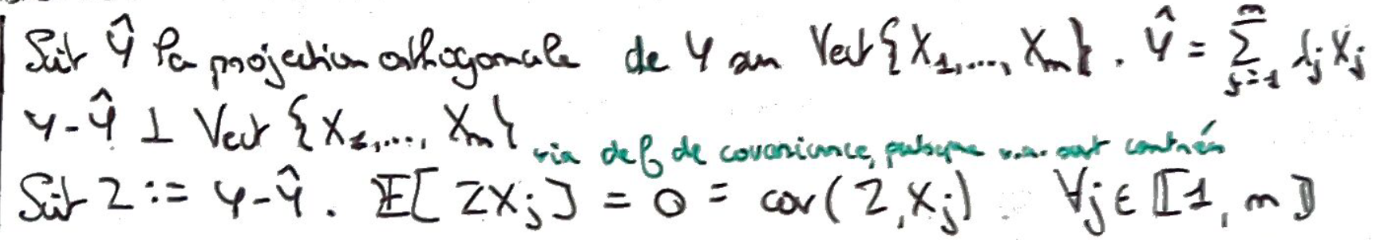 Soit Ŷ la projection orthogonale de Y sur Vect{X₁,..., Xₙ}. Ŷ = ∑ⁿⱼ₌₁ λⱼ Xⱼ
Y-Ŷ ⊥ Vect {X₁,..., Xₙ}
via def de covariance, puisque v.a. sont centrées
Soit Z := Y-Ŷ. 𝔼[ZXⱼ] = 0 = cov(Z,Xⱼ) ∀j ∈ ⟦1, n⟧